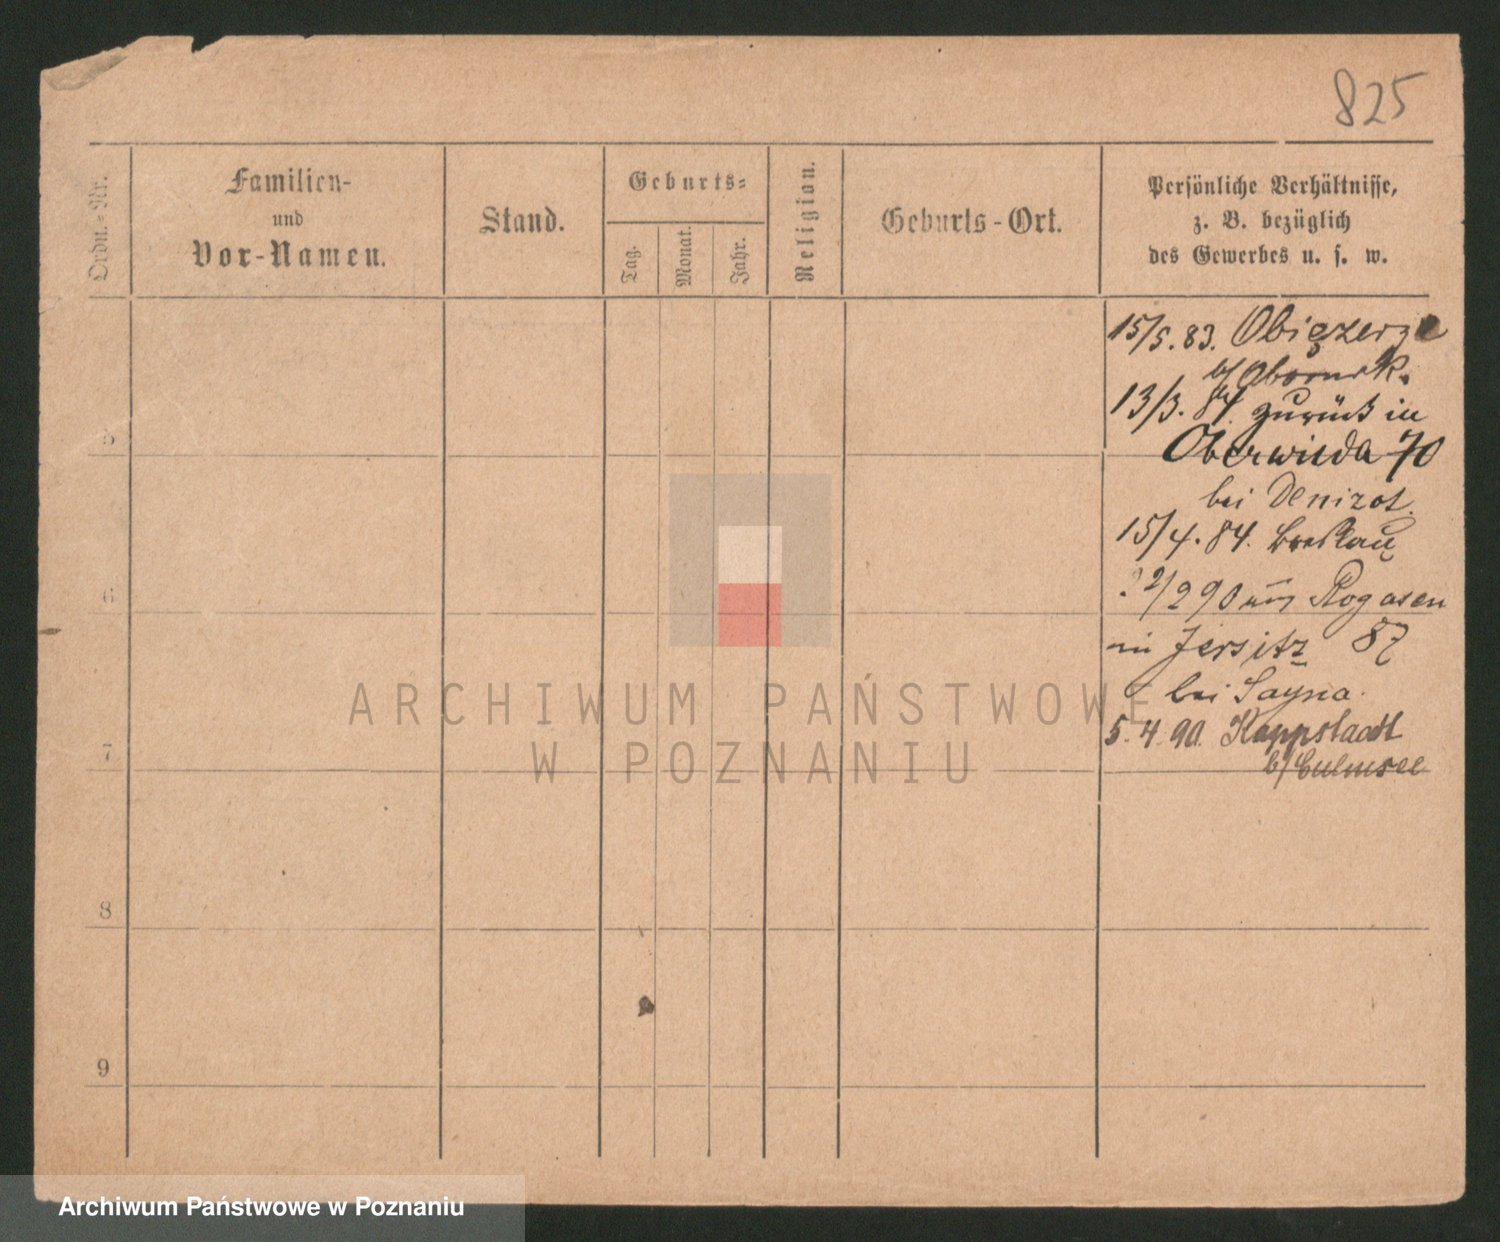 825
Ordn.-Nr.
Familien-
und
Vor-Namen.
Stand.
Geburts-
Tag.
Monat.
Jahr.
Religion.
Geburts-Ort.
Persönliche Verhältnisse,
z. B. bezüglich
des Gewerbes u. s. w.
15/5. 83. Obiezerze
b/ Obornik.
13/3. 84. zurück in
Oberwilda 70
bei Denizot.
15/4. 84. Breslau
2/2 90 aus Rogasen
in Jersitz 87
bei Sayna.
5. 4. 90. Kappstaedt
b/ Culmsee
5
6
7
8
9
ARCHIWUM PAŃSTWOWE
W POZNANIU
Archiwum Państwowe w Poznaniu